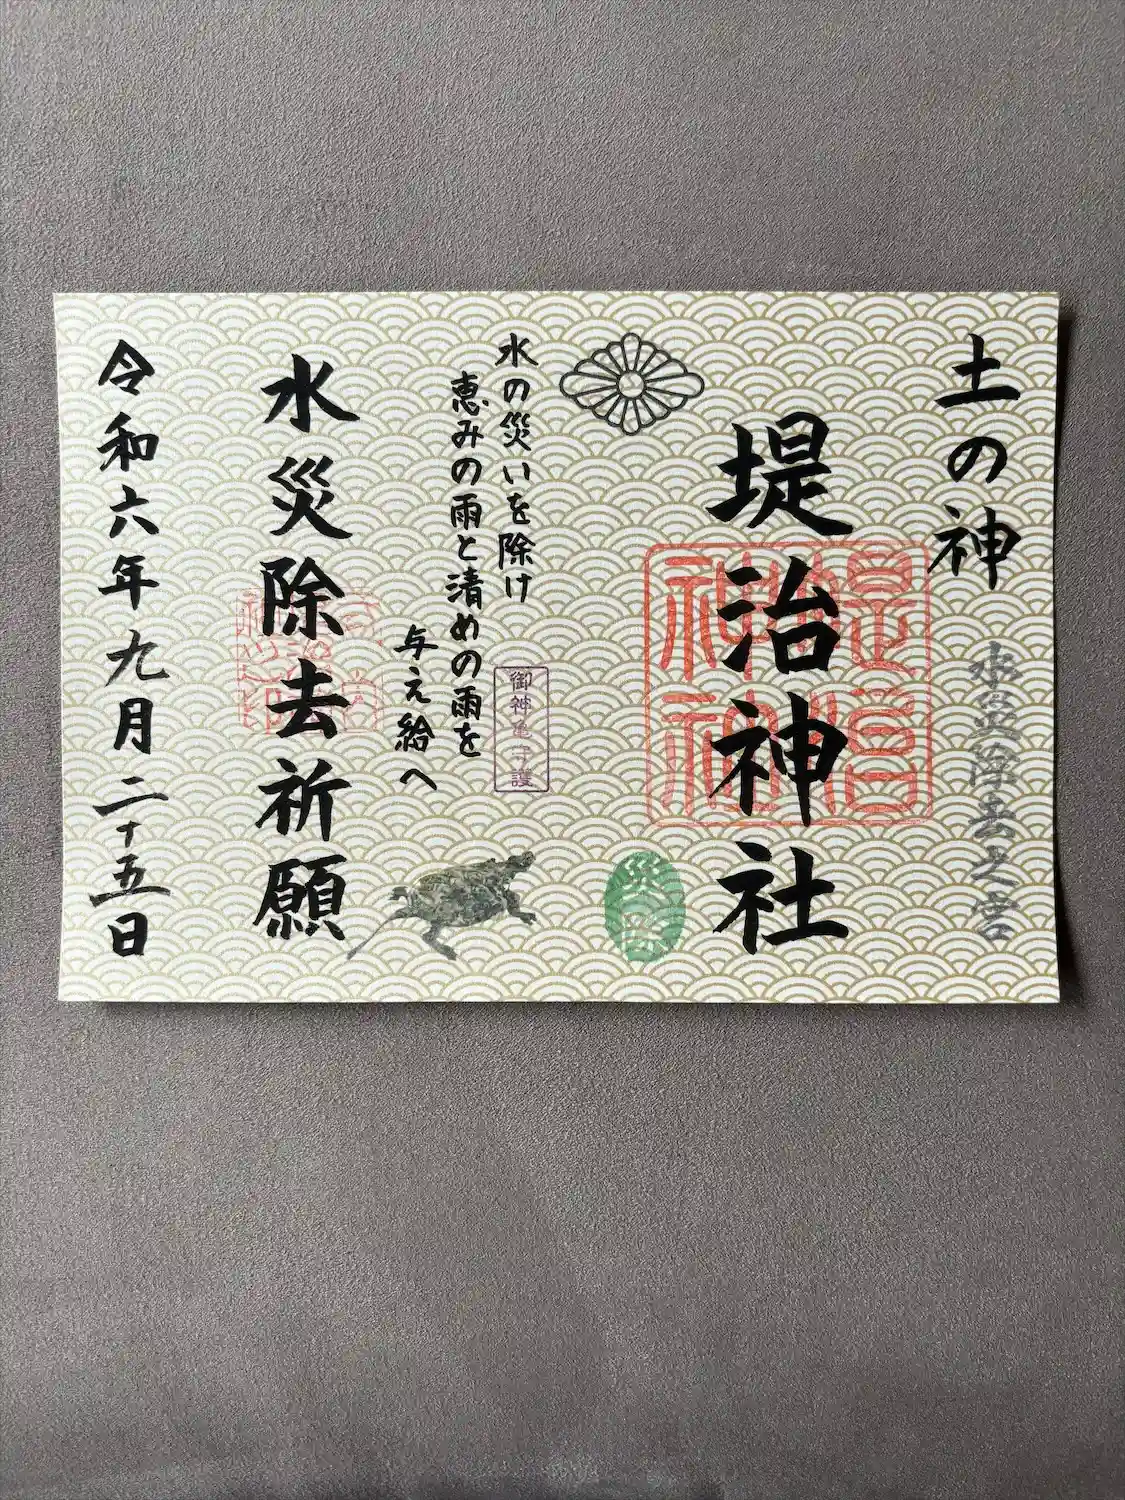 土の神
水災除去之宮
堤治神社
堤治神社
災除
水の災いを除け
恵みの雨と清めの雨を
与え給へ
御神亀守護
水災除去祈願
令和六年九月二十五日